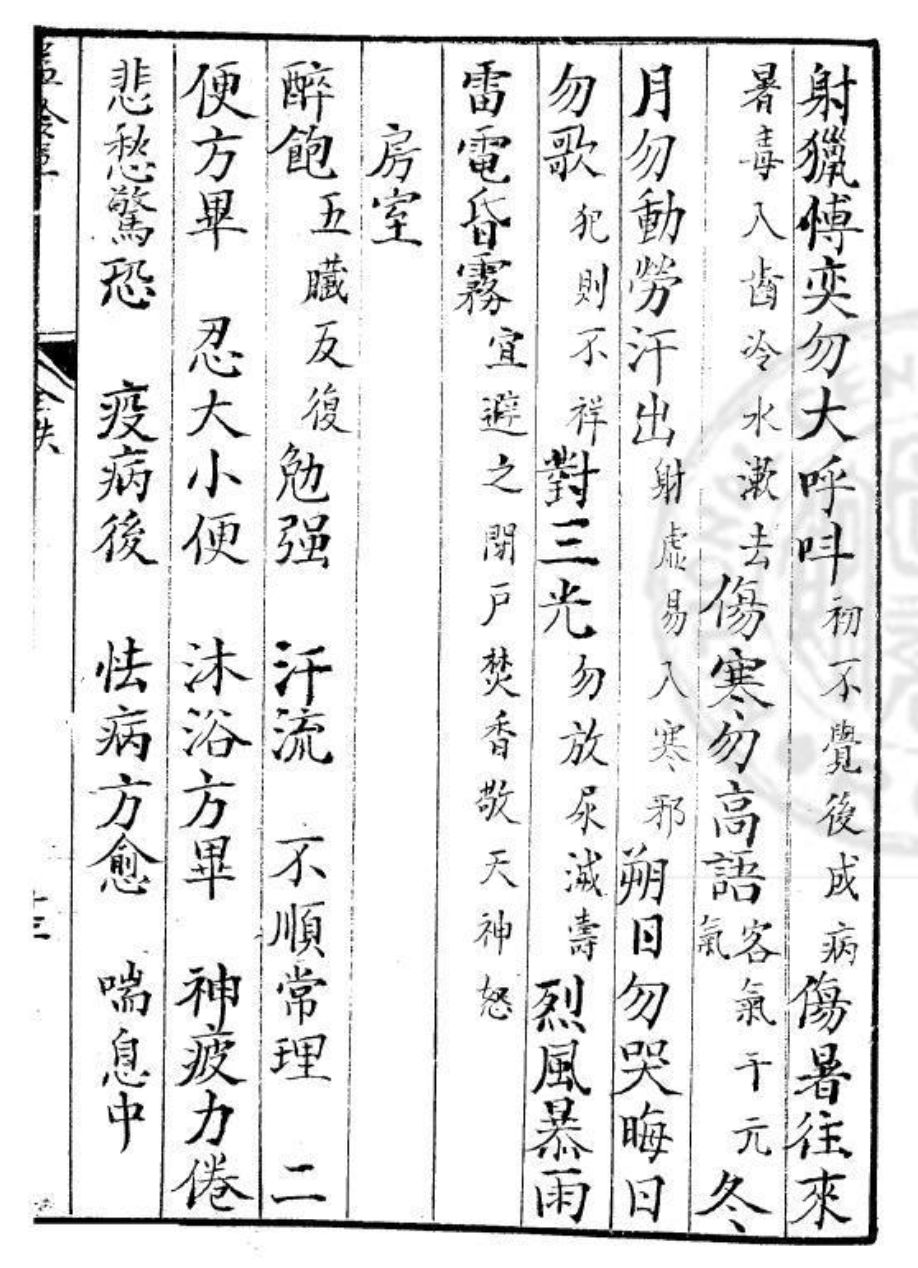 射獵愽奕勿大呼呌初不覺後成病傷暑往來
暑毒入齒冷水漱去傷寒勿高語客氣干元氣冬
月勿動勞汗出射虛易入寒邪朔日勿哭晦日
勿歌犯則不祥對三光勿放尿滅壽烈風暴雨
雷電昏霧宜避之閉戶焚香敬天神怒
房室
醉飽五臟反復勉强 汗流 不順常理 二
便方畢 忍大小便 沐浴方畢 神疲力倦
悲愁驚恐 疫病後 怯病方愈 喘息中